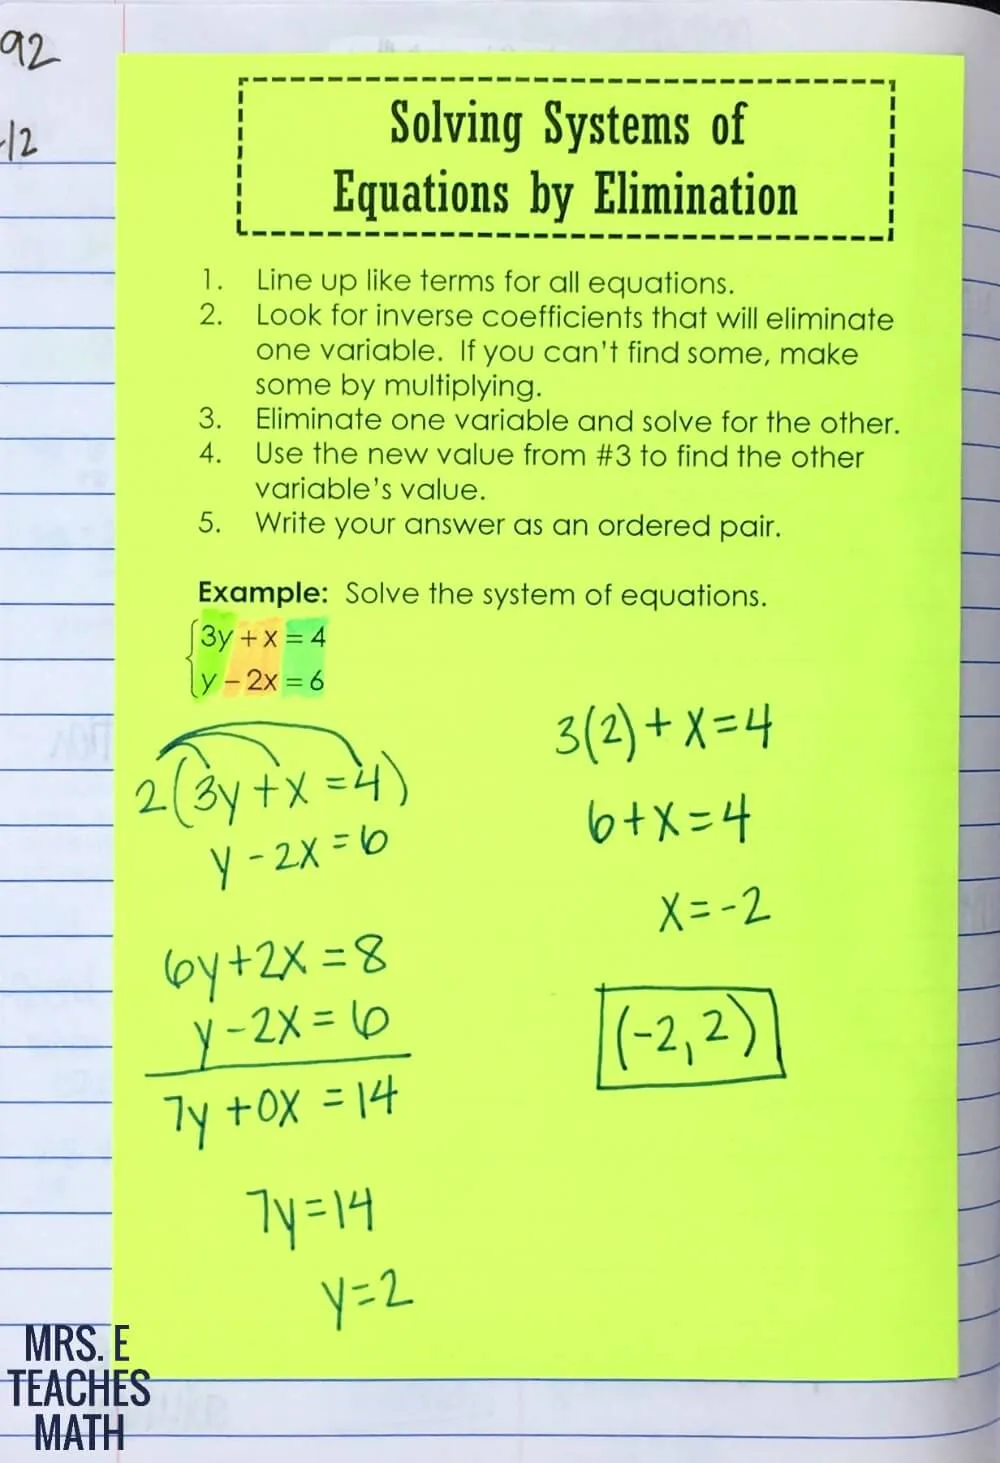 92
-12
Solving Systems of
Equations by Elimination
1. Line up like terms for all equations.
2. Look for inverse coefficients that will eliminate
one variable. If you can't find some, make
some by multiplying.
3. Eliminate one variable and solve for the other.
4. Use the new value from #3 to find the other
variable's value.
5. Write your answer as an ordered pair.
Example: Solve the system of equations.
3y + x = 4
y - 2x = 6
2(3y + x = 4)
y - 2x = 6
6y + 2x = 8
y - 2x = 6
7y + 0x = 14
7y = 14
y = 2
3(2) + x = 4
6 + x = 4
x = -2
(-2, 2)
MRS. E
TEACHES
MATH